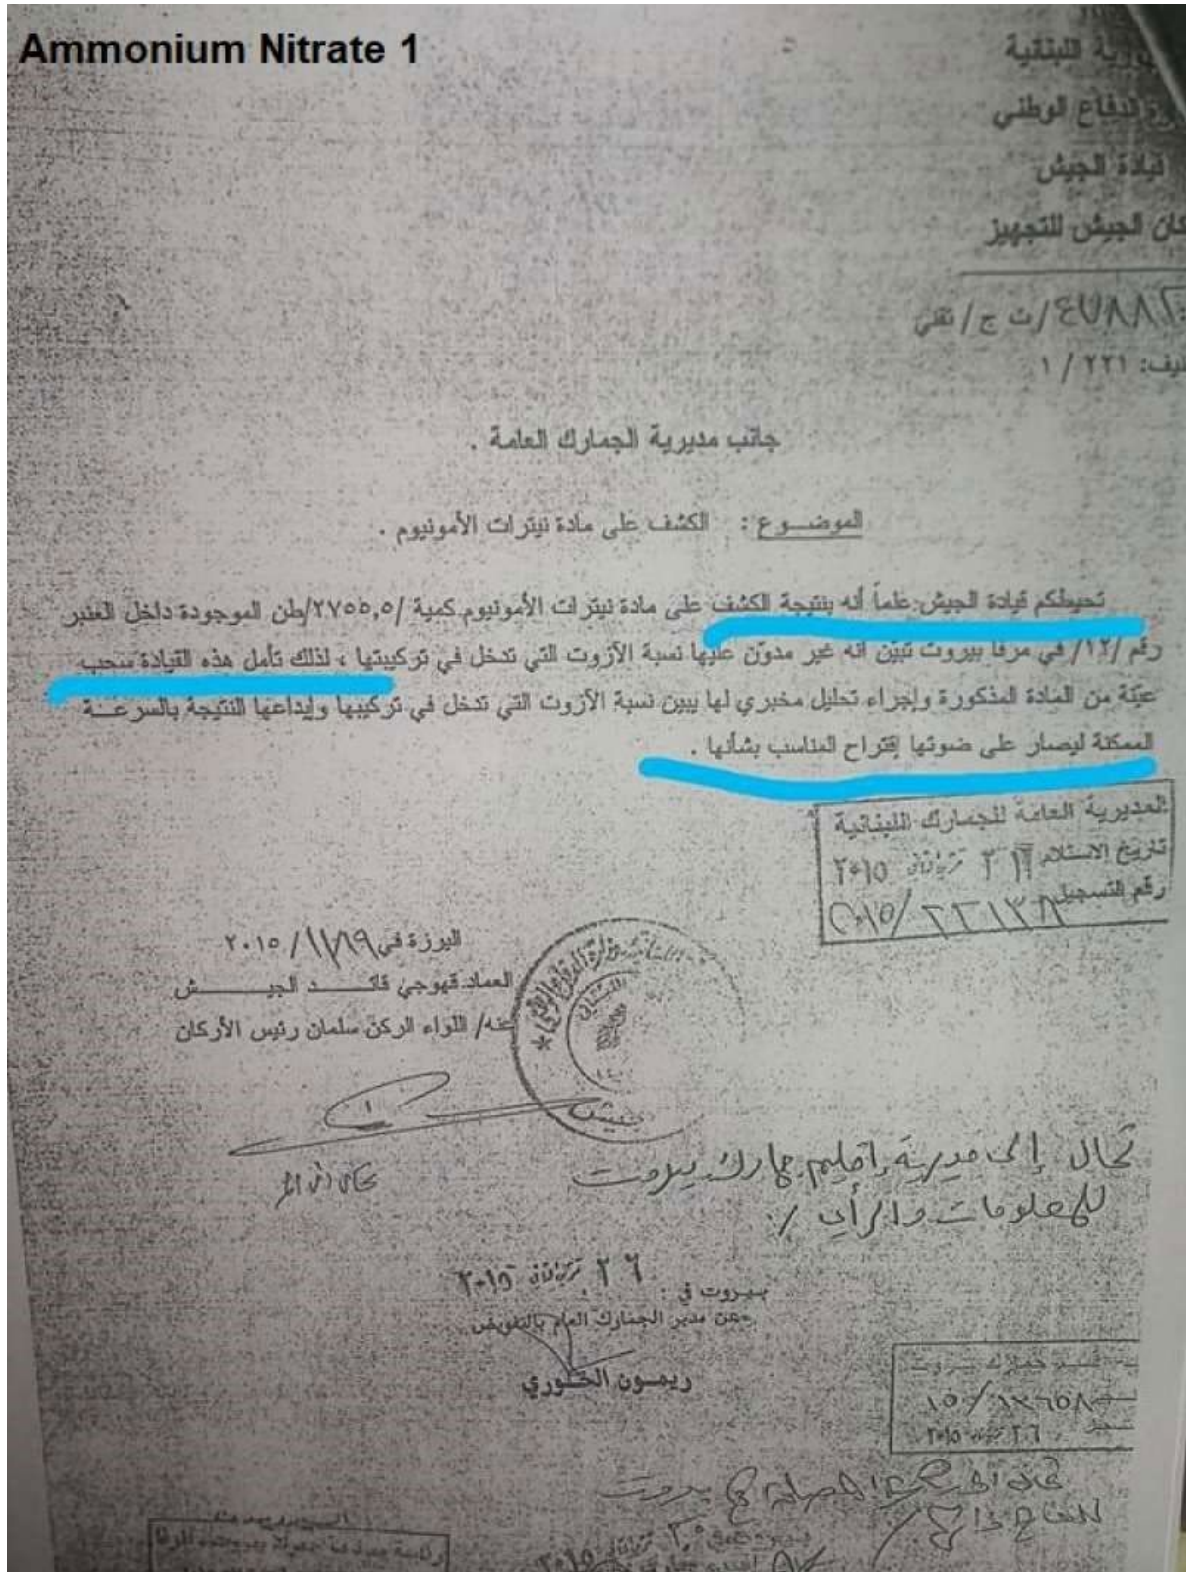 Ammonium Nitrate 1
اللبنانية
الدفاع الوطني
قيادة الجيش
الجيش للتجهيز
/ث ج/ تقني
١ / ٢٢١ :
جانب مديرية الجمارك العامة .
الموضــوع : الكشف على مادة نيترات الأمونيوم .
تحيطكم قيادة الجيش علماً أنه بنتيجة الكشف على مادة نيترات الأمونيوم كمية /٢٧٥٥,٥/طن الموجودة داخل العنبر
رقم /١٢/ في مرفأ بيروت تبيّن أنه غير مدوّن عليها نسبة الأزوت التي تدخل في تركيبتها ، لذلك تأمل هذه القيادة سحب
عيّنة من المادة المذكورة وإجراء تحليل مخبري لها يبين نسبة الأزوت التي تدخل في تركيبها وإيداعها النتيجة بالسرعــة
الممكنة ليصار على ضوئها إقتراح المناسب بشأنها .
المديرية العامة للجمارك اللبنانية
تاريخ الاستلام تشرين الثاني ٢٠١٥
رقم التسجيل
اليرزة في / ٢٠١٥
العماد قهوجي قائــد الجيــش
عنه/ اللواء الركن سلمان رئيس الأركان
تحال إلى مديرية إقليم جمارك بيروت
للمعلومات والرأي ./
بيروت في : ٢٦ تشرين الثاني ٢٠١٥
عن مدير الجمارك العام بالتفويض
ريمون الخوري
جمارك بيروت
٢٦ تشرين الثاني ٢٠١٥
بيروت